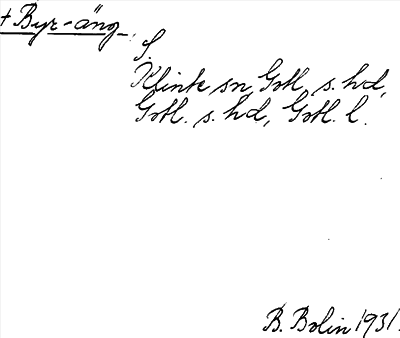 + Byr-äng
S.
Klinte sn, Gotl. s. hd,
Gotl. s. hd, Gotl. l.
B. Bolin 1931.